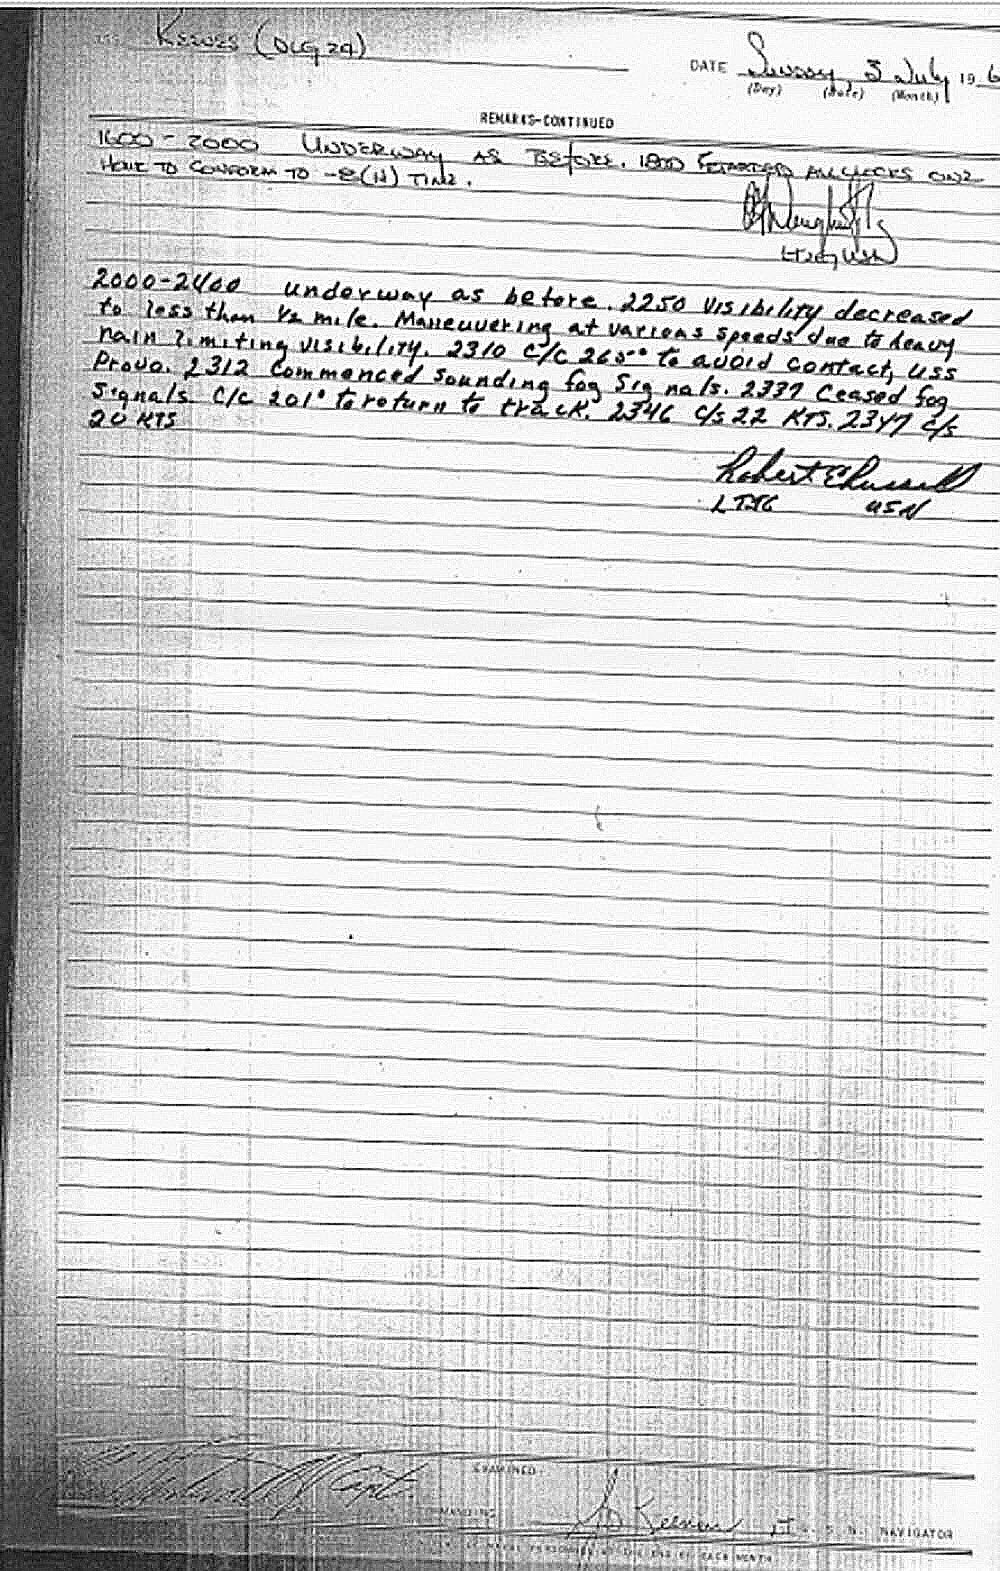 Reeves (DLG 24)
DATE Sunday 3 July 196
(Day) (Date) (Month)
REMARKS-CONTINUED
1600-2000 UNDERWAY AS BEFORE. 1800 RETARDED ALL CLOCKS ONE
HOUR TO CONFORM TO -8(H) TIME.
LTJG, USN
2000-2400 underway as before. 2250 Visibility decreased
to less than 1/2 mile. Maneuvering at various speeds due to heavy
rain limiting visibility. 2310 C/C 265° to avoid contact, USS
Provo. 2312 Commenced sounding fog signals. 2337 Ceased fog
signals C/C 201° to return to track. 2346 C/S 22 KTS. 2347 C/S
20 KTS
Robert E Russell
LTJG USN
EXAMINED
Capt.
LT U. S. N. NAVIGATOR
NAVAL PERSONNEL AT THE END OF EACH MONTH